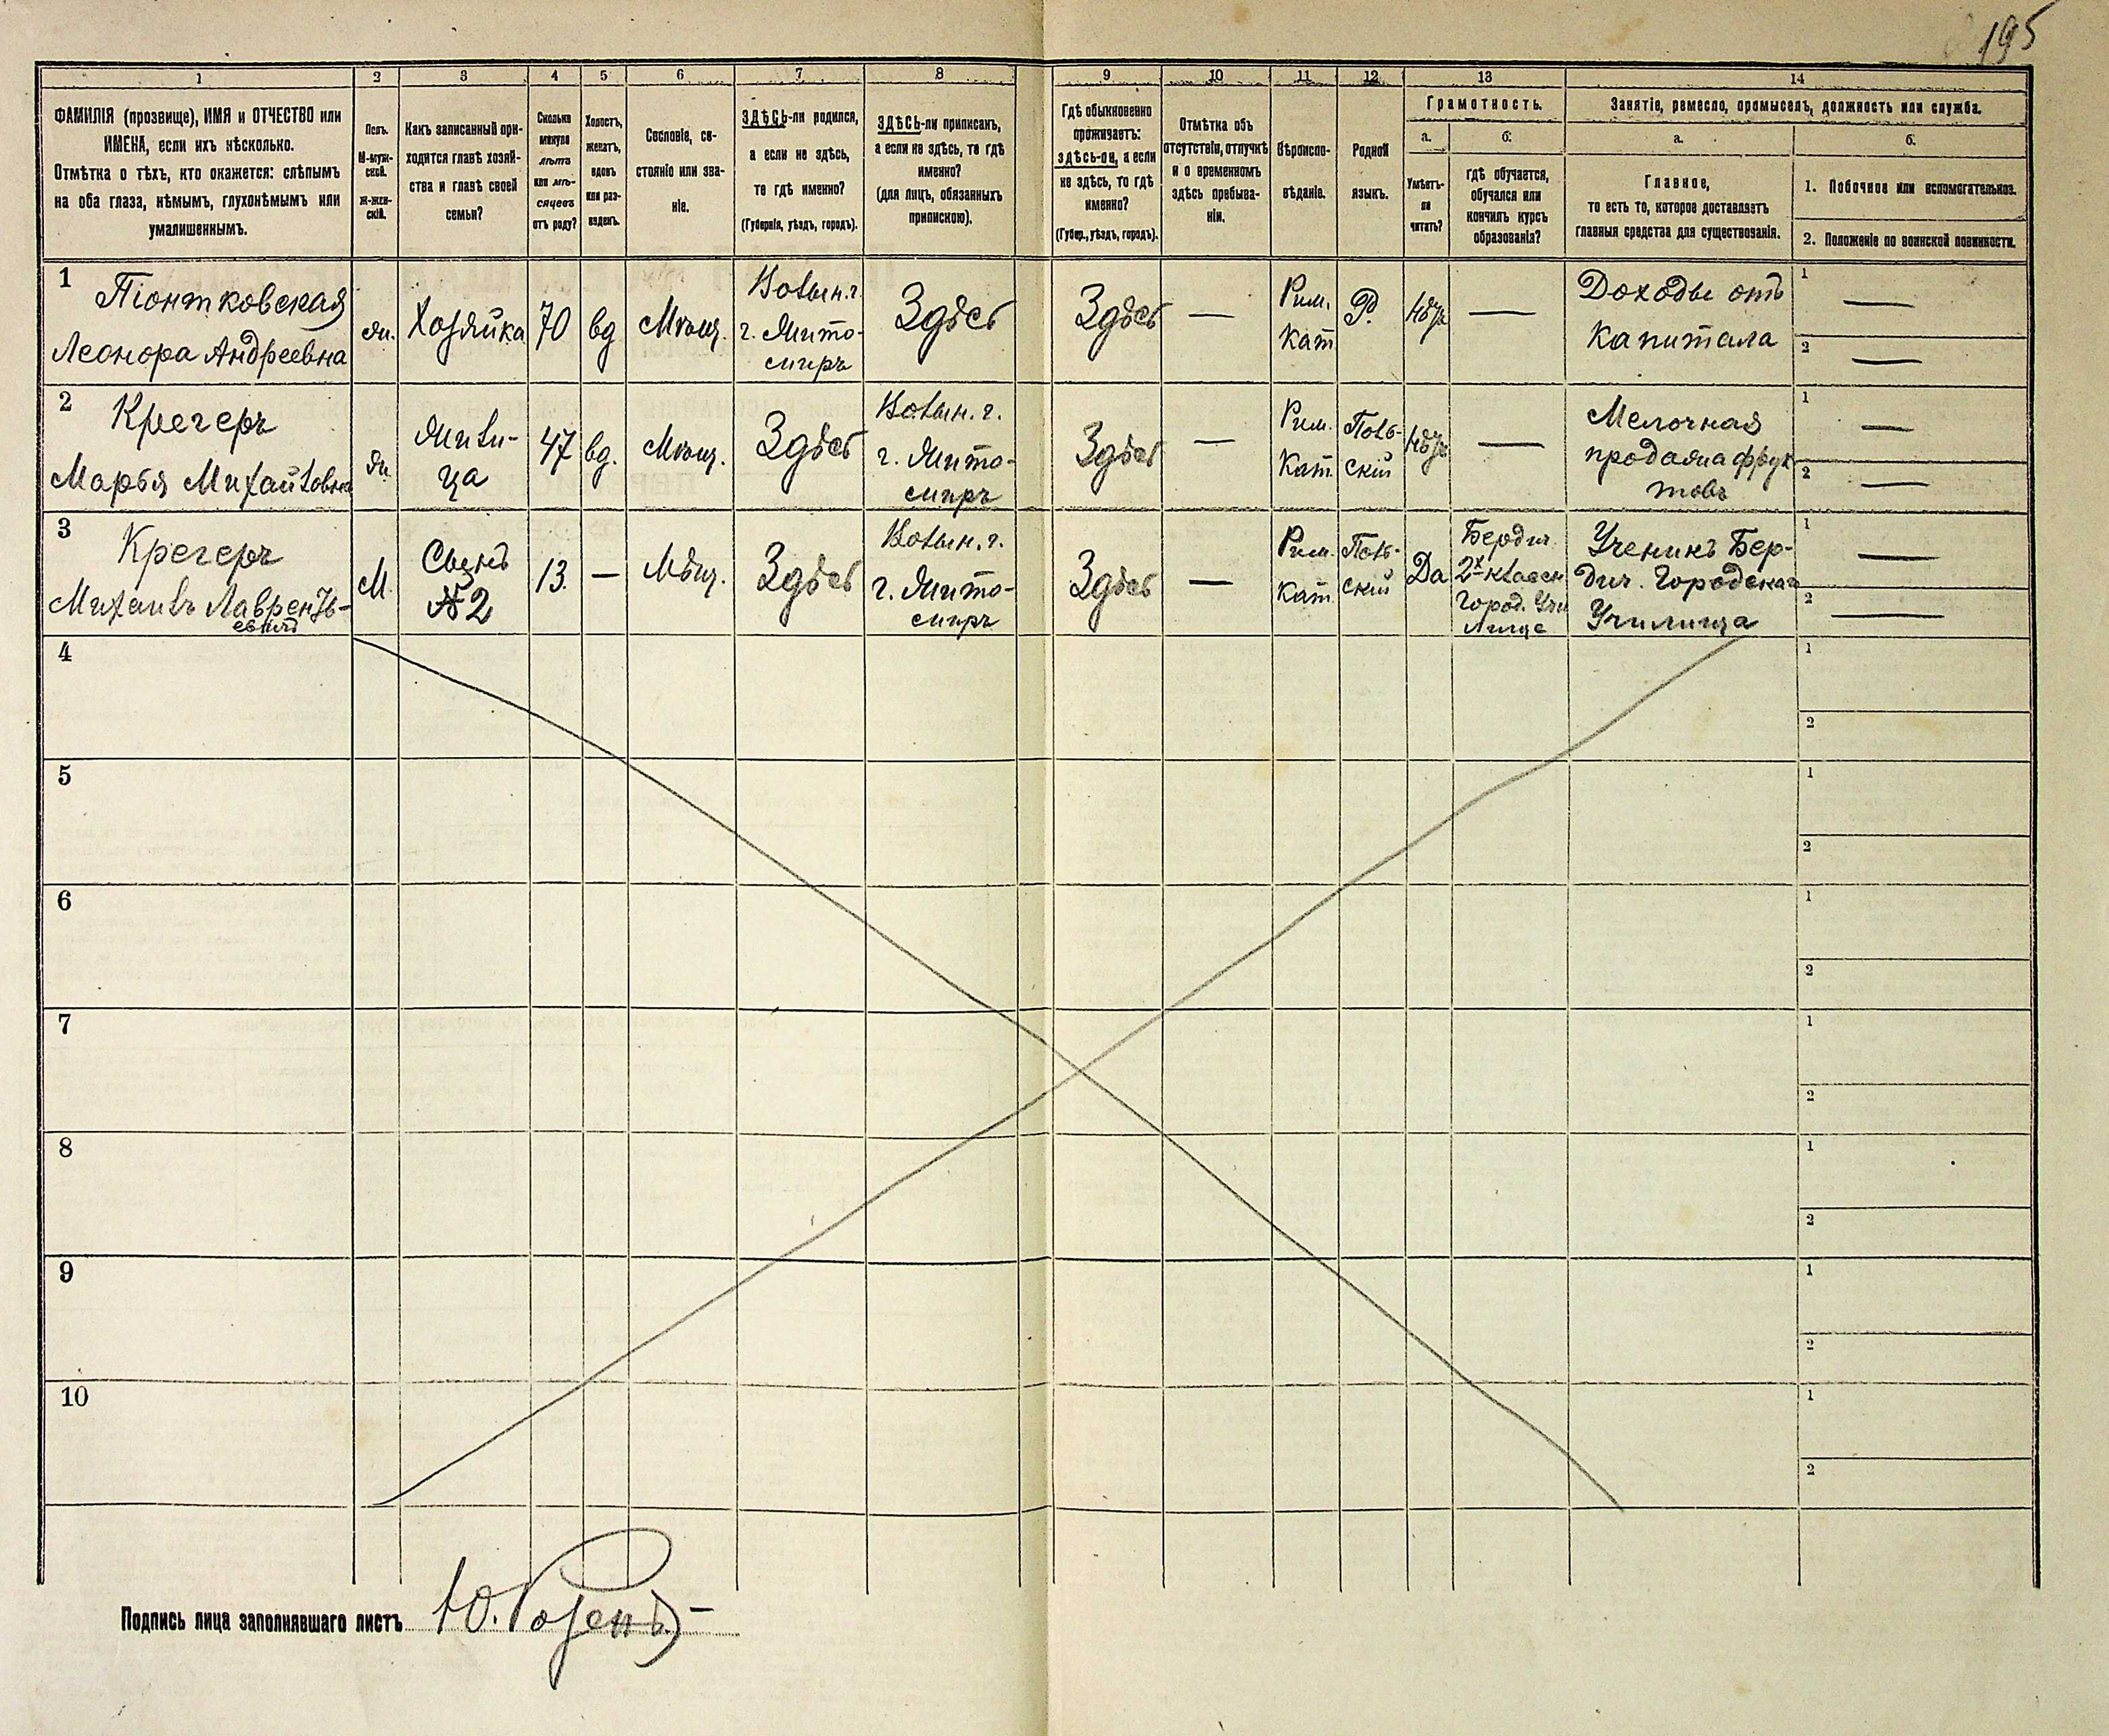 195
1 2 3 4 5 6 7 8 9 10 11 12 13 14
ФАМИЛІЯ (прозвище), ИМЯ и ОТЧЕСТВО или
ИМЕНА, если ихъ нѣсколько.
Отмѣтка о тѣхъ, кто окажется: слѣпымъ
на оба глаза, нѣмымъ, глухонѣмымъ или
умалишеннымъ.
Полъ.
М-муж-
ской.
Ж-жен-
скій.
Какъ записанный при-
ходится главѣ хозяй-
ства и главѣ своей
семьи?
Сколько
минуло
лѣтъ
или мѣ-
сяцевъ
отъ роду?
Холостъ,
женатъ,
вдовъ
или раз-
веденъ.
Сословіе, со-
стояніе или зва-
ніе.
ЗДѢСЬ-ли родился,
а если не здѣсь,
то гдѣ именно?
(Губернія, уѣздъ, городъ).
ЗДѢСЬ-ли приписанъ,
а если не здѣсь, то гдѣ
именно?
(для лицъ, обязанныхъ
припискою).
Гдѣ обыкновенно
проживаетъ:
здѣсь-ли, а если
не здѣсь, то гдѣ
именно?
(Губер., уѣздъ, городъ).
Отмѣтка объ
отсутствіи, отлучкѣ
и о временномъ
здѣсь пребыва-
ніи.
Вѣроиспо-
вѣданіе.
Родной
языкъ.
Грамотность.
а.
Умѣетъ-
ли
читать?
б.
гдѣ обучается,
обучался или
кончилъ курсъ
образованія?
Занятіе, ремесло, промыселъ, должность или служба.
а.
Главное,
то есть то, которое доставляетъ
главныя средства для существованія.
б.
1. Побочное или вспомогательное.
2. Положеніе по воинской повинности.
1
Піонтковская
Леонора Андреевна
ж.
Хозяйка
70
вд
Мѣщ.
Волын. г.
г. Жито-
миръ
Здѣсь
Здѣсь
—
Рим.
Кат
Р.
Нѣтъ
—
Доходы отъ
капитала
1 —
2 —
2
Крегеръ
Марья Михайловна
ж.
Жили-
ца
47
вд.
Мѣщ.
Здѣсь
Волын. г.
г. Жито-
миръ
Здѣсь
—
Рим.
Кат.
Поль-
скій
Нѣтъ
—
Мелочная
продажа фрук
товъ
1 —
2 —
3
Крегеръ
Михаилъ Лаврентъ-
евичъ
М.
Сынъ
№ 2
13.
—
Мѣщ.
Здѣсь
Волын. г.
г. Жито-
миръ
Здѣсь
—
Рим.
Кат.
Поль-
скій
Да
Бердич.
2х-классн
Город. Учи
лище
Ученикъ Бер-
дич. Городскаго
Училища
1 —
2 —
4
1
2
5
1
2
6
1
2
7
1
2
8
1
2
9
1
2
10
1
2
Подпись лица заполнявшаго листъ Ю. Розенъ